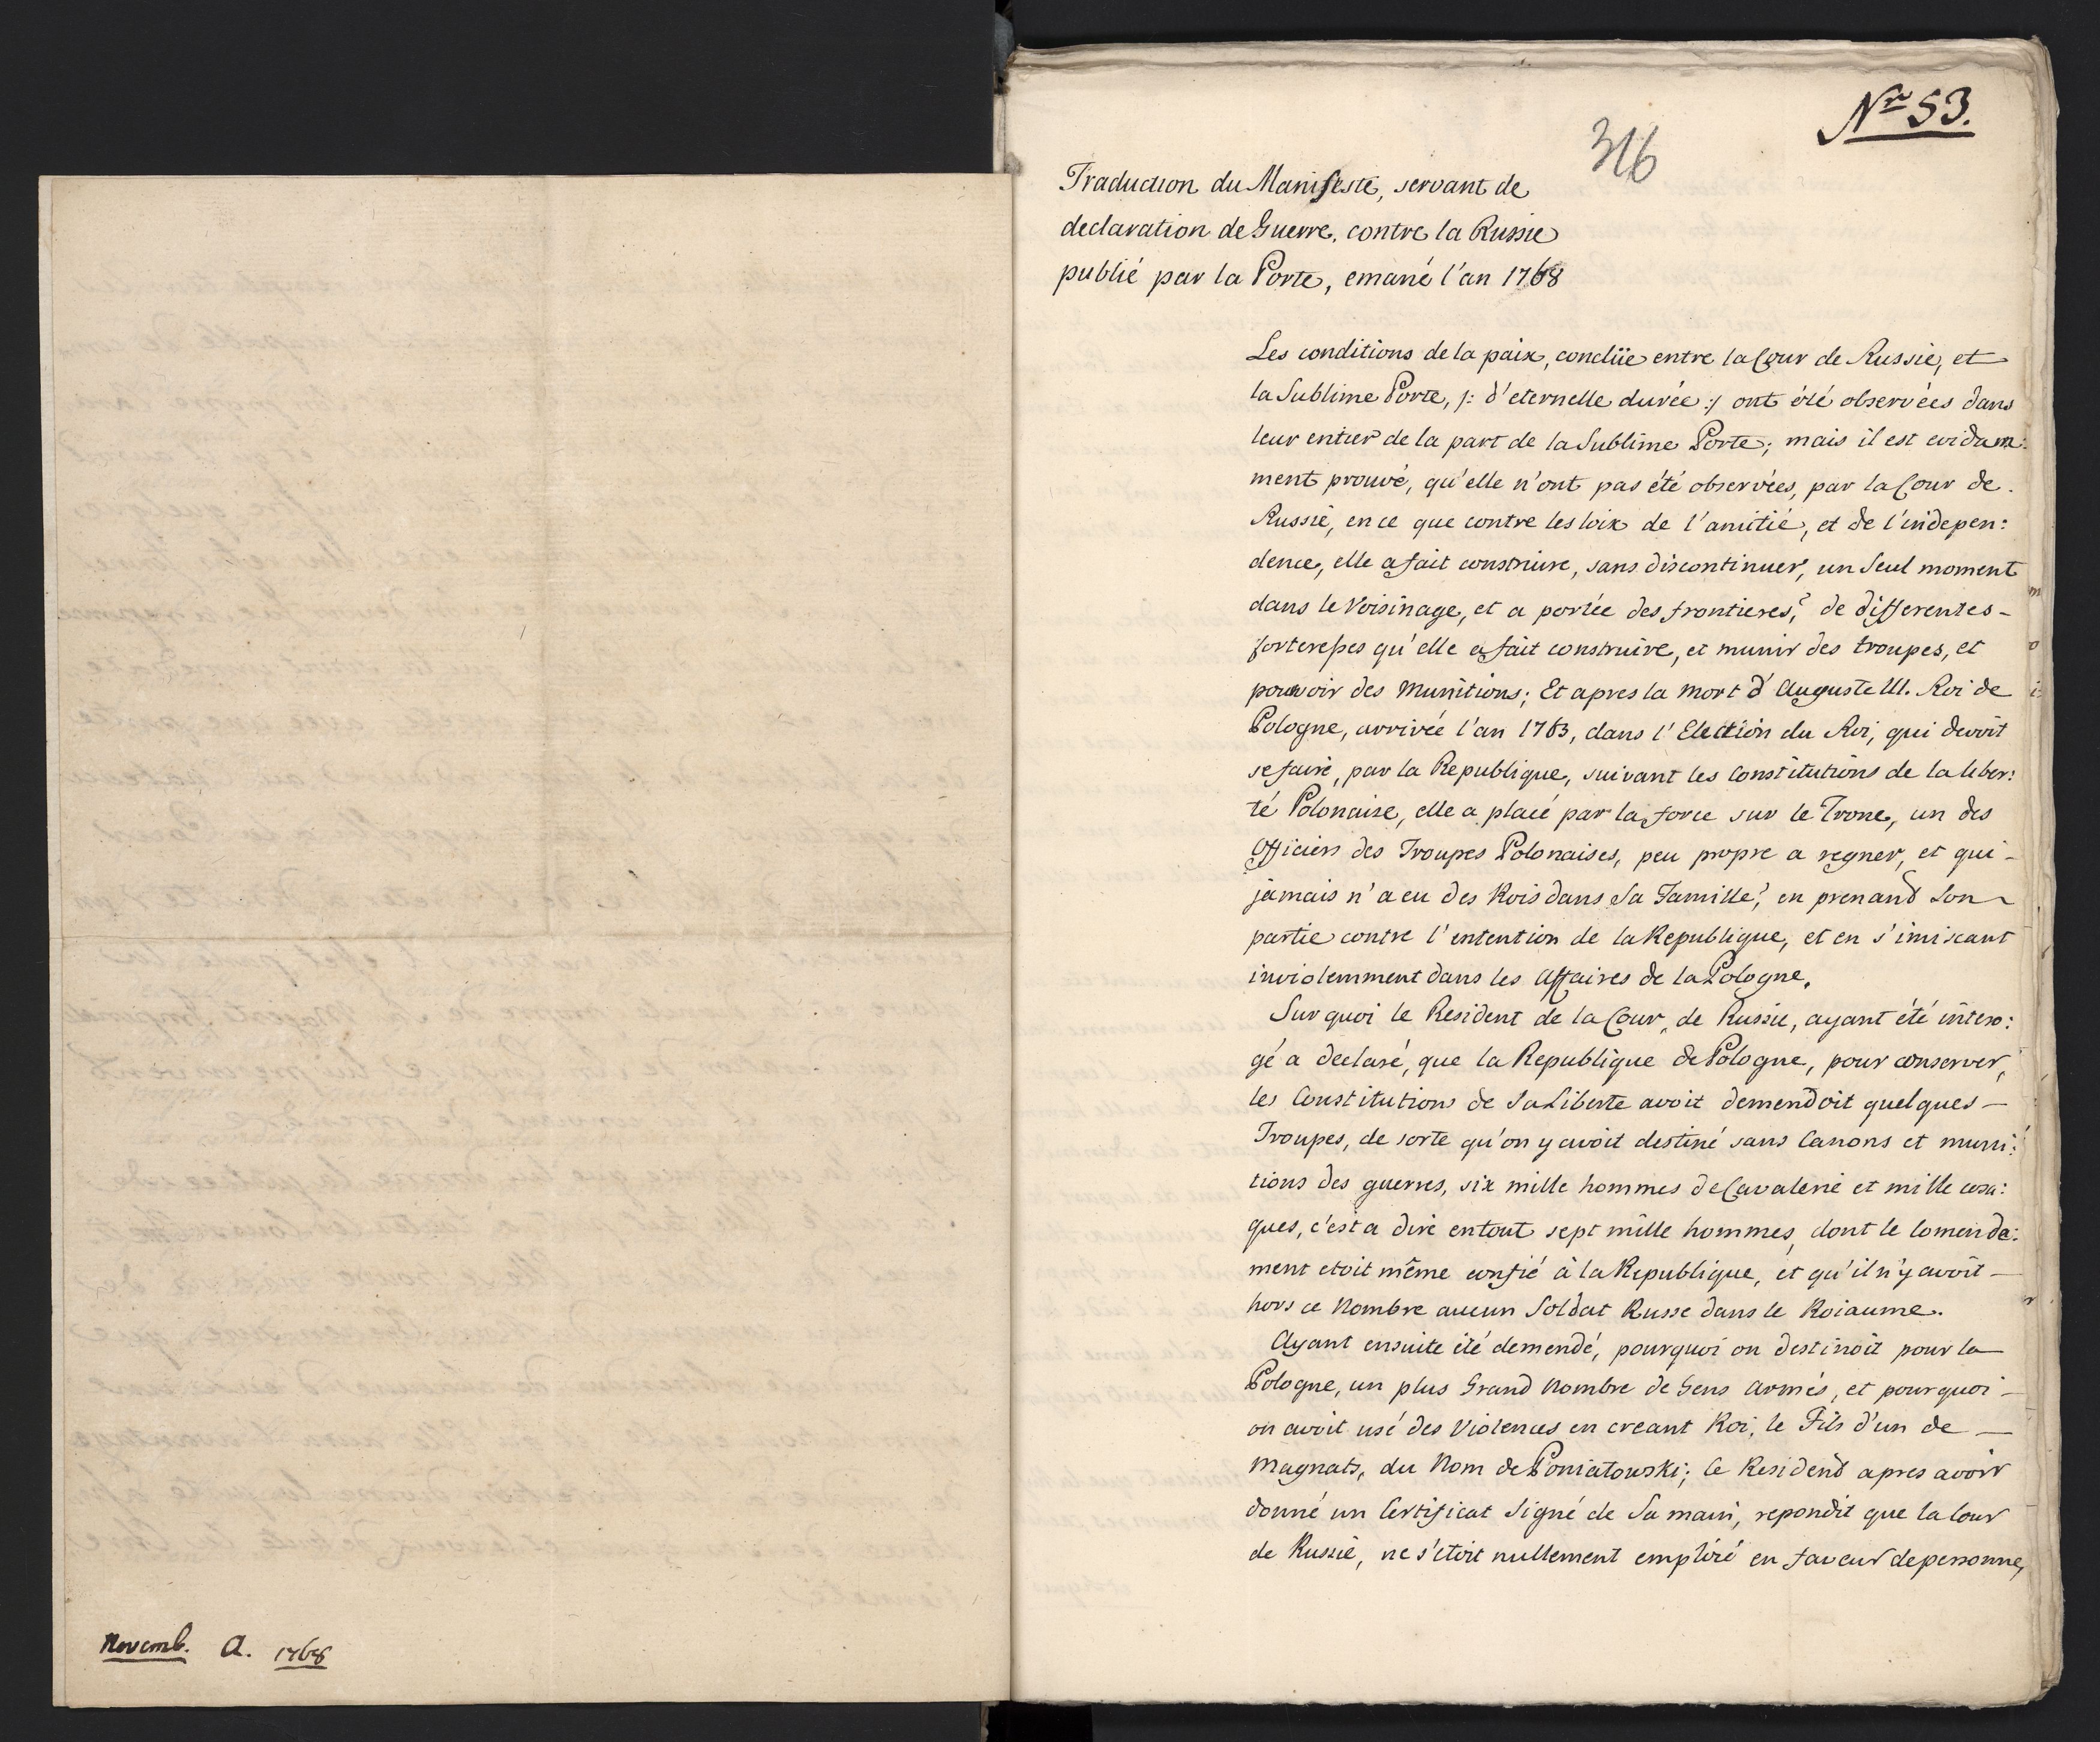 Novemb. A. 1768
Nro 53.
316
Traduction du Manifeste, servant de
declaration de Guerre, contre la Russie
publié par la Porte, emané l'an 1768
Les conditions de la paix, conclüe entre la Cour de Russie, et
la Sublime Porte, /: d'eternelle durée :/ ont été observées dans
leur entier de la part de la Sublime Porte; mais il est evidam:
ment prouvé, qu'elle n'ont pas été observées, par la Cour de
Russie, en ce que contre les loix de l'amitié, et de l'indepen:
dence, elle a fait construire, sans discontinuer, un Seul moment
dans le Voisinage, et a portée des frontieres, de differentes
forteresses qu'elle a fait construire, et munir des troupes, et
pourvoir des Munitions; Et apres la mort d'Auguste III. Roi de
Pologne, arrivée l'an 1763, dans l'Election du Roi, qui devoit
se faire, par la Republique, suivant les Constitutions de la liber:
té Polonaise, elle a placé par la force sur le Trone, un des
Officiers des Troupes Polonaises, peu propre a regner, et qui
jamais n'a eu des Rois dans Sa Famille, en prenand Son
partie contre l'entention de la Republique, et en s'imiscant
inviolemment dans les Affaires de la Pologne.
Sur quoi le Resident de la Cour, de Russie, ayant été intero:
gé a declaré, que la Republique de Pologne, pour conserver,
les Constitutions de Sa Liberte avoit demendoit quelques
Troupes, de sorte qu'on y avoit destiné sans Canons et muni:
tions des guerres, six mille hommes de Cavalerie et mille cosa:
ques, c'est a dire en tout sept mille hommes, dont le Comenda:
ment etoit même confié à la Republique, et qu'il n'y avoit
hors ce Nombre aucun Soldat Russe dans le Roiaume.
Ayant ensuite été demendé, pourquoi on destinoit pour la
Pologne, un plus Grand Nombre de Gens Armés, et pourquoi
on avoit usé des Violences en creant Roi, le Fils d'un de
Magnats, du Nom de Poniatowski; le Residend apres avoir
donné un Certificat Signé de Sa main, repondit que la Cour
de Russie, ne s'etoit nullement emploié en faveur de personne,